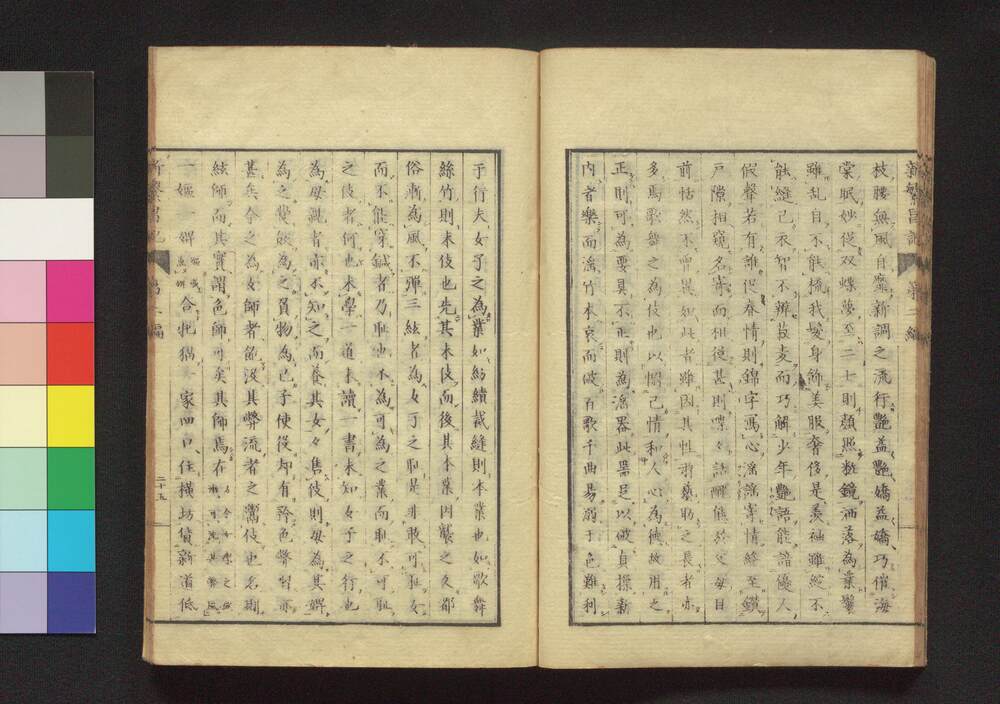 枝腰無風自靡新調之流行艷益艷嬌益嬌巧催海
棠眠妙從双蝶夢至二七則顔照粧鏡洒落為業鬢
雖乱自不能梳我髮身飾美服奢侈是羨袖雖綻不
能縫己衣智不辨菽麦而巧解少年艷語能諳優人
假聲若有誰促春情則錦字寫心滛謡寄情終至鑽
戸隙相窺名寄而相從甚則喋々誇醉態於父母目
前恬然不曽異如此者雖因其性習藝助之長者亦
多焉歌舞之為伎也以慆己情和人心為徳故用之
正則可為要具不正則為滛器此器足以破貞操新
内者樂而滛竹本哀而破百歌千曲易溺于色難利
于行夫女子之為業如紡績裁縫則本業也如歌舞
絲竹則末伎也先其末伎而後其本業因襲之久都
俗漸為風不彈三絃者為女子之恥是非敢可恥女
而不能穿鍼者乃恥也不為可為之業而恥不可恥
之伎者何也未學一道未讀一書未知女子之行也
為母親者亦不知之而養其女々售伎則母為其婢
為之聲為之負物為己子使役却有矜色弊習亦
甚矣今之為女師者皆汲其弊流者之鬻伎也名絃
絃師而其實謂色師可矣其師焉在
一嫗一婢合牝猫一家四口住横坊債新道低
新繁昌記 第二編
二十五